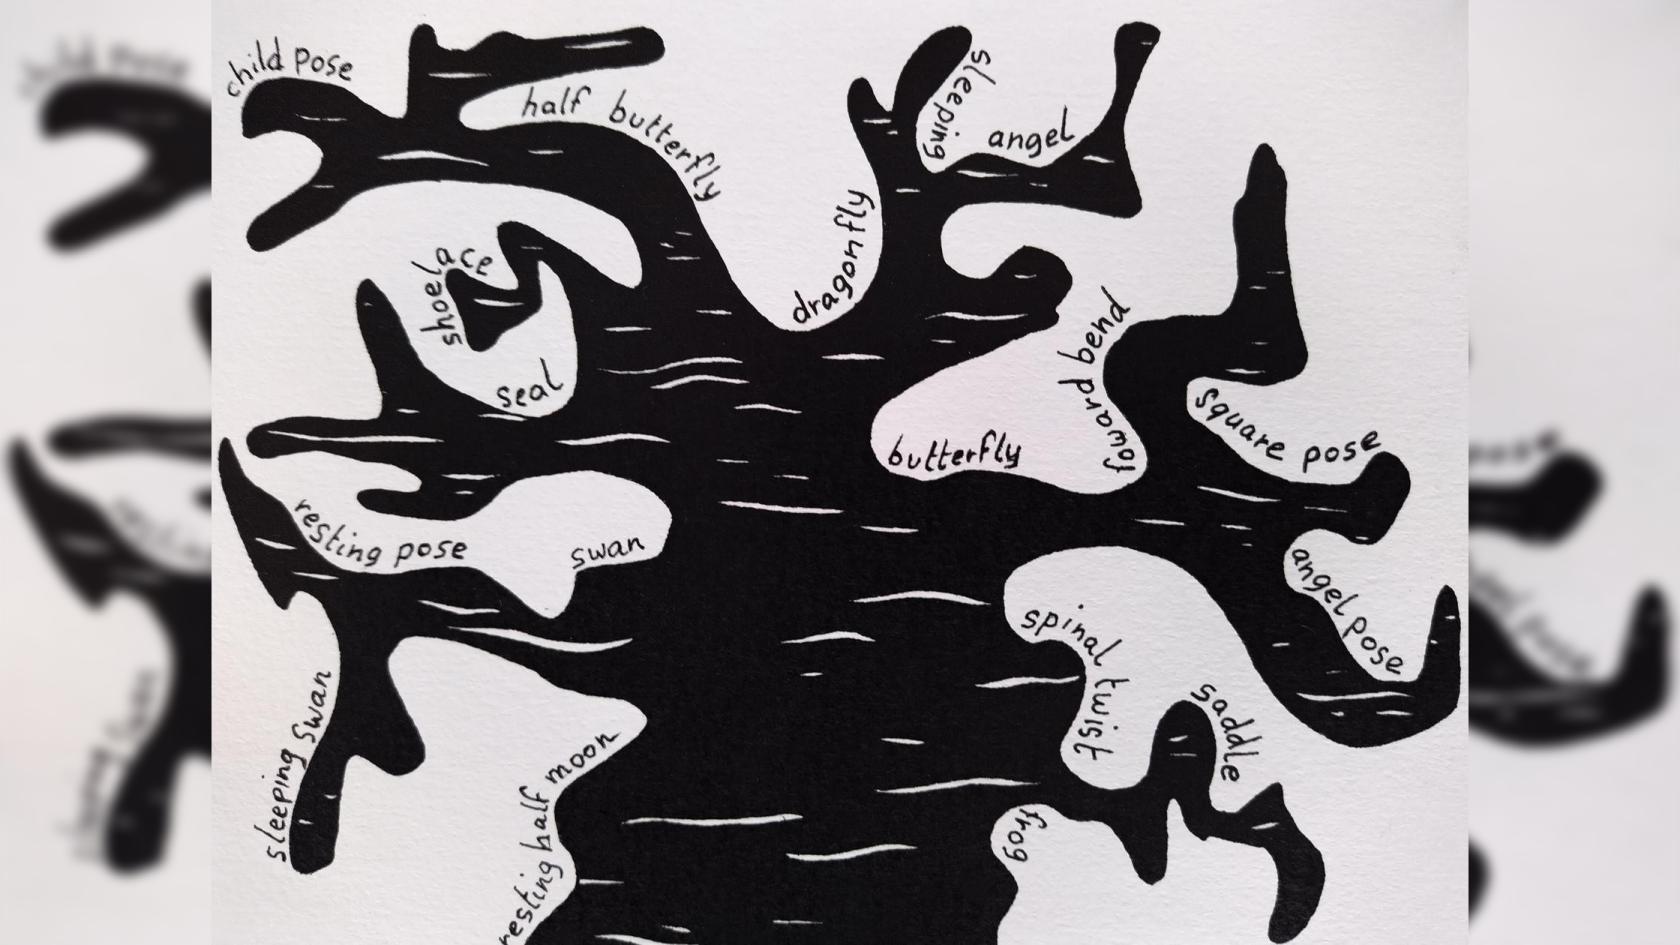 child pose
half butterfly
sleeping
angel
dragonfly
shoelace
seal
forward bend
butterfly
square pose
resting pose
swan
angel pose
spinal twist
saddle
sleeping swan
resting half moon
frog